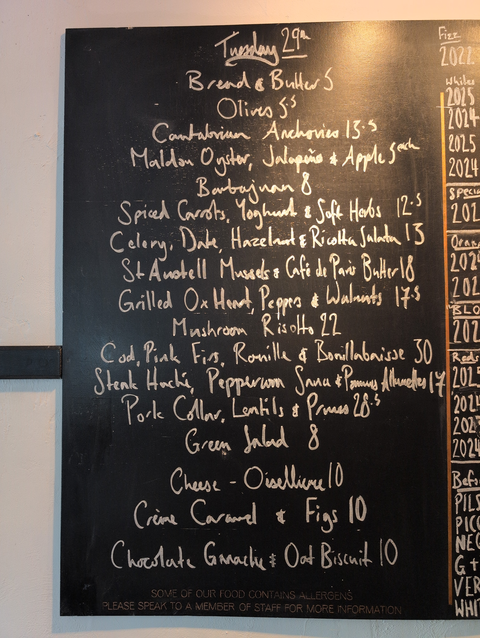 Tuesday 29th
Bread & Butter 5
Olives 5.5
Cantabrian Anchovies 13.5
Maldon Oyster, Jalapeño & Apple 5 each
Barbajuan 8
Spiced Carrots, Yoghurt & Soft Herbs 12.5
Celery, Date, Hazelnut & Ricotta Salata 13
St Austell Mussels & Café de Paris Butter 18
Grilled Ox Heart, Peppers & Walnuts 17.5
Mushroom Risotto 22
Cod, Pink Firs, Rouille & Bouillabaisse 30
Steak Haché, Peppercorn Sauce & Pommes Allumettes 17
Pork Collar, Lentils & Prunes 28.5
Green Salad 8
Cheese - Oisellière 10
Crème Caramel & Figs 10
Chocolate Ganache & Oat Biscuit 10
SOME OF OUR FOOD CONTAINS ALLERGENS
PLEASE SPEAK TO A MEMBER OF STAFF FOR MORE INFORMATION
Fizz
2022
Whites
2025
2024
2025
2024
202
Reds
202
2024
202
2024
G +